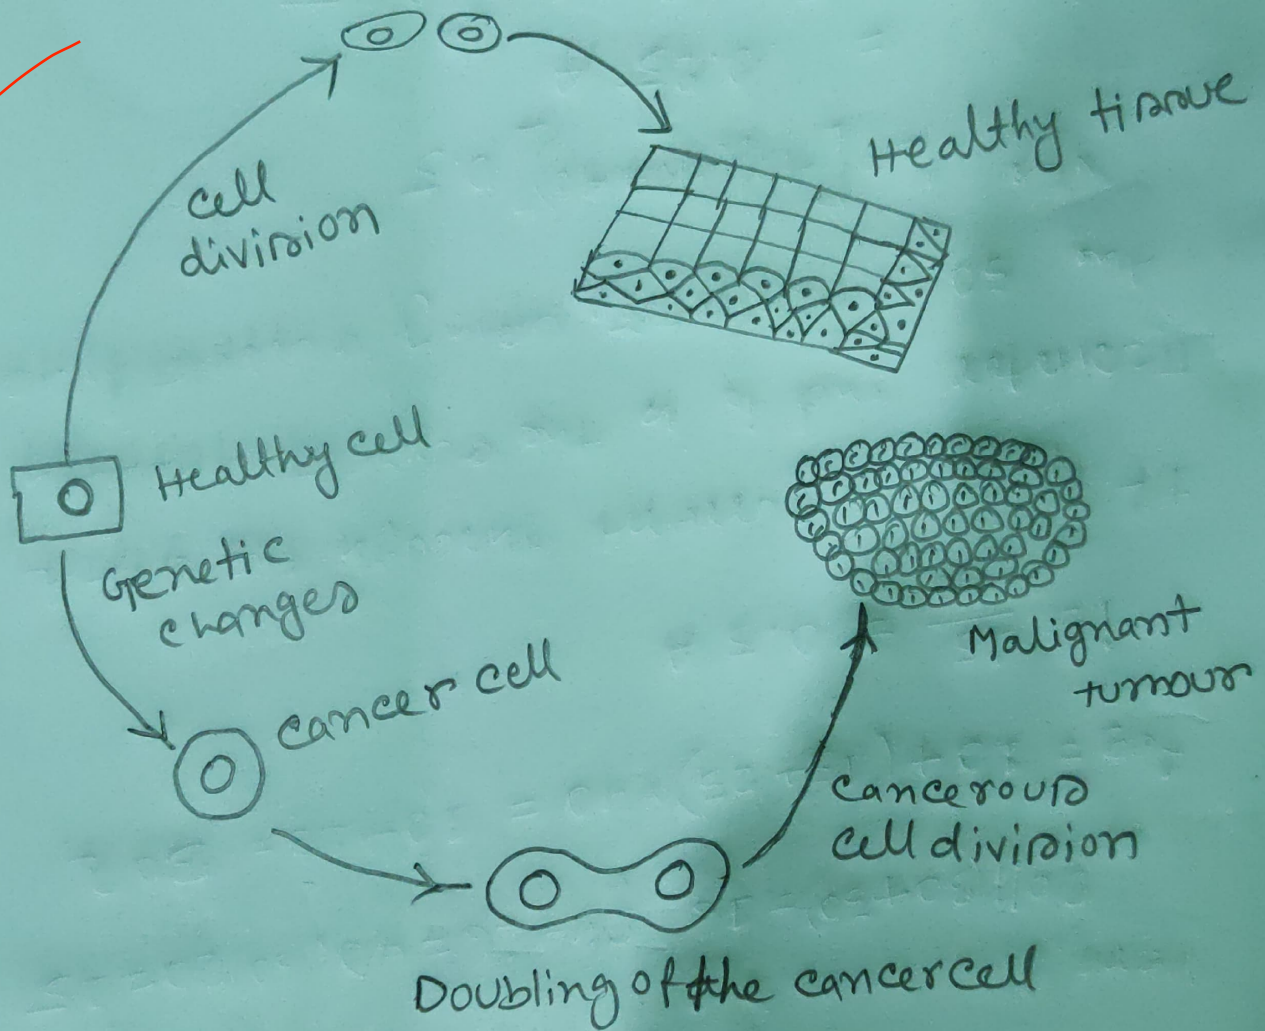 Healthy tissue
cell
division
Healthy cell
Genetic
changes
cancer cell
Malignant
tumour
cancerous
cell division
Doubling of the cancer cell